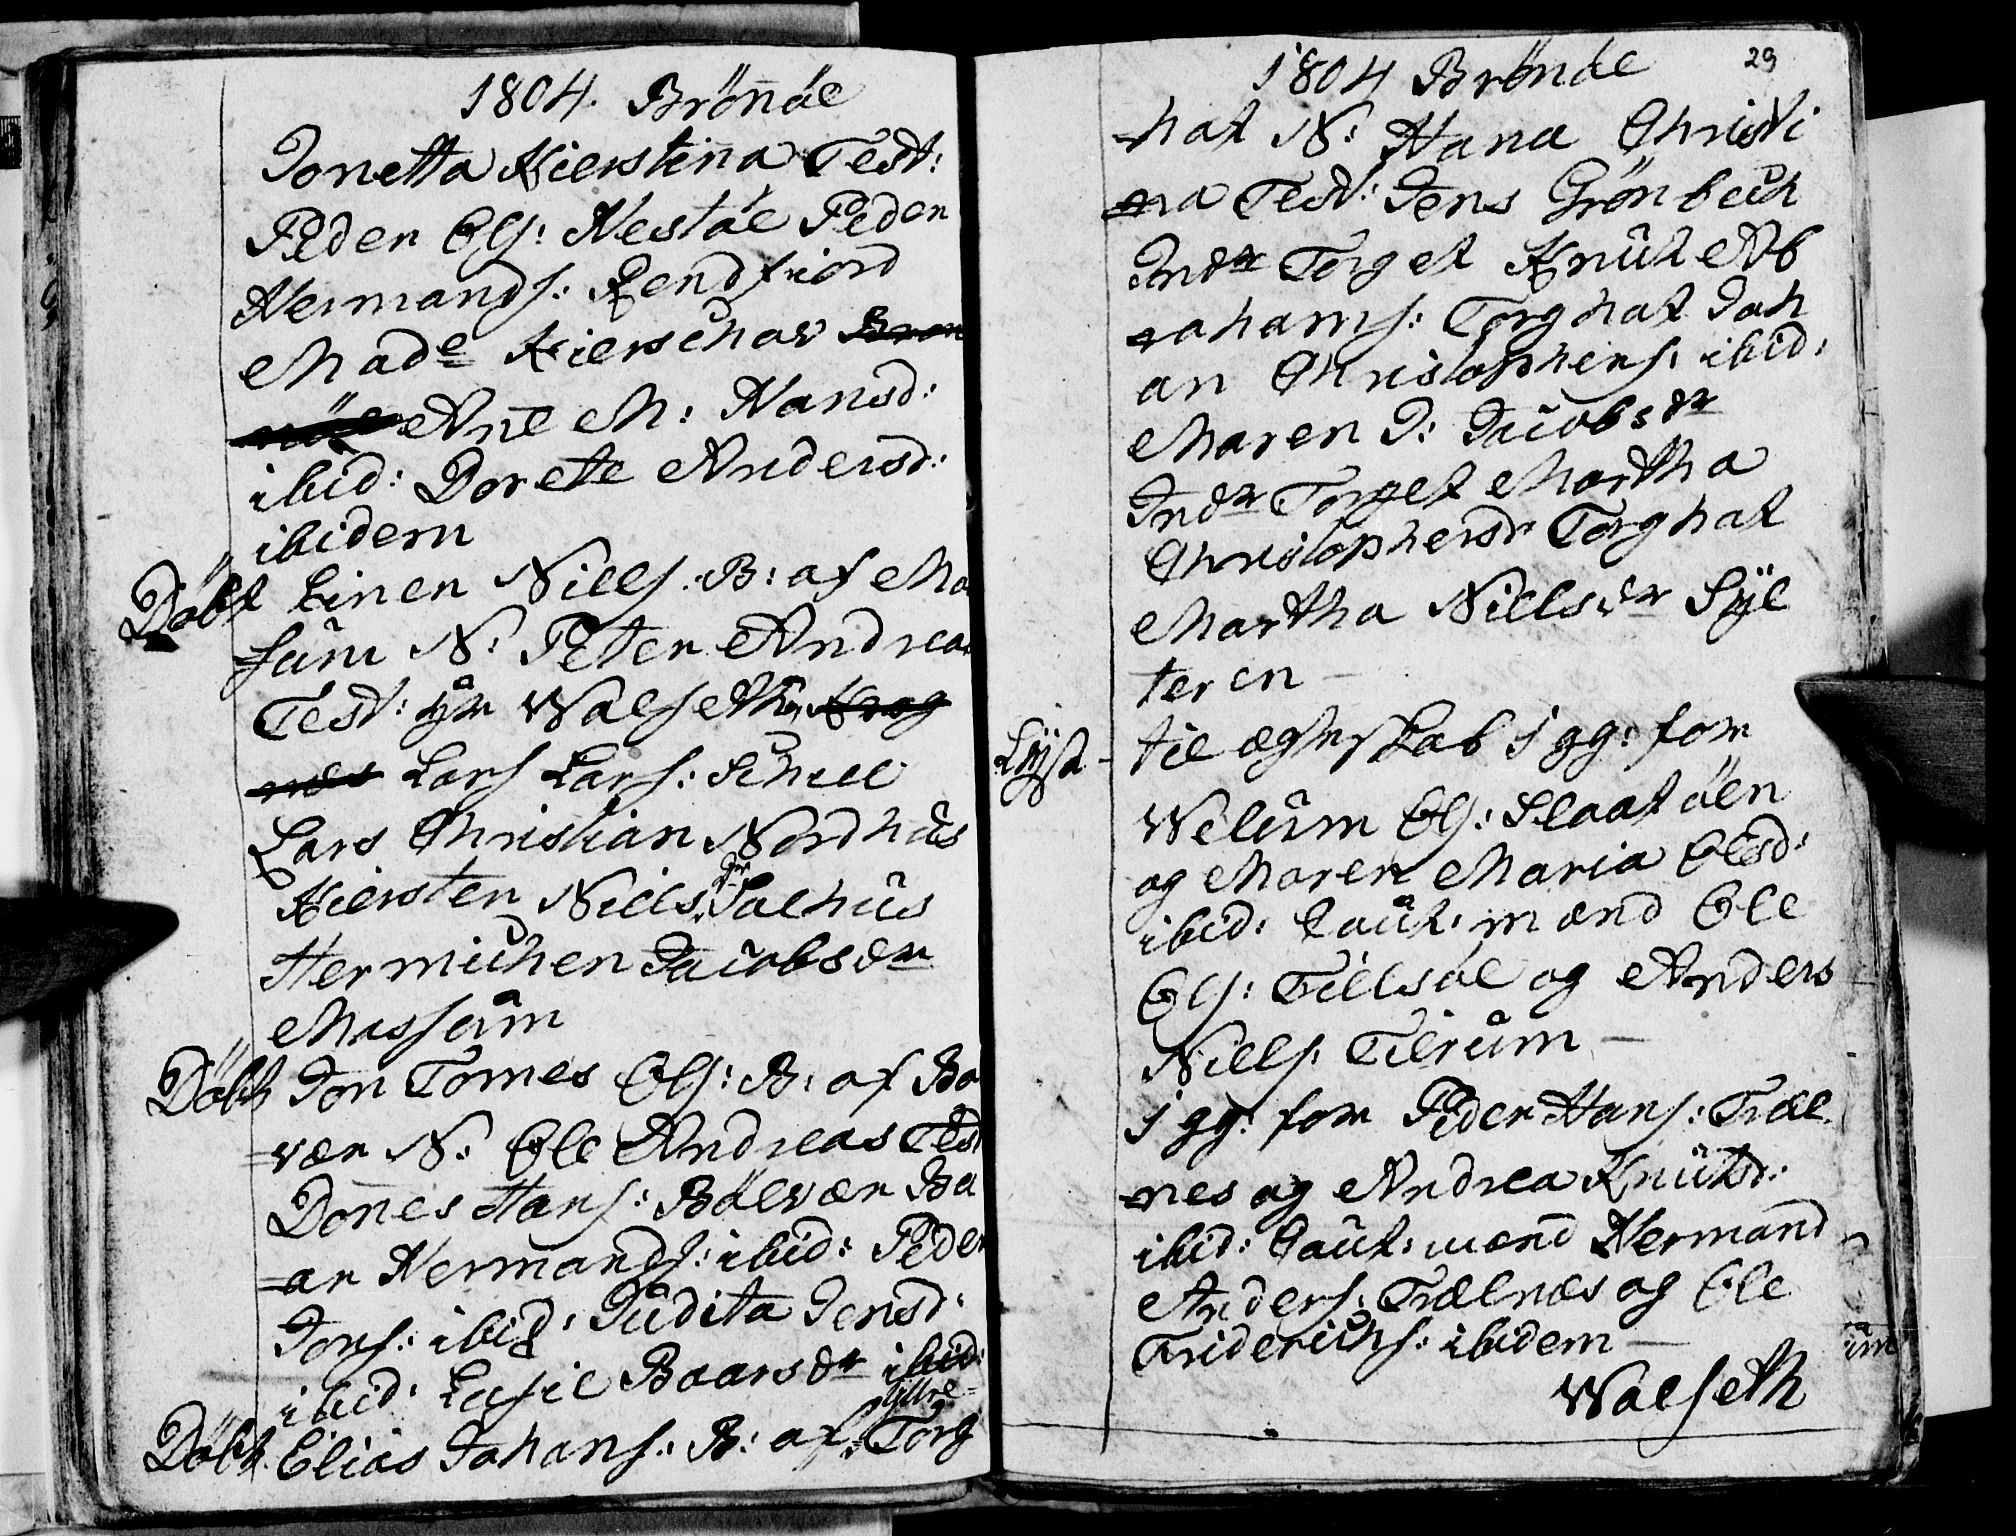 1804. Brönöe
Jonetta Kierstina Test:
Peder Ols: Nestöe Peder
Hermands: Rendfiord
Mad<sup>e</sup> Kierschov Brön
nöe Ane M: Hansd:
ibid: Dorete Andersd:
ibidem
Döbt Einer Niels: B: af Mo
sům N: Peter Andreas
Test: Hr Walseth,
Lars Lars: Schiel
Lars Christian Nordhůs
Kiersten Nielsdr Salhůs
Hermichen Jacobsdr
Massům
Döbt Jon Tomes Ols: B: af Bo
vær N: Ole Andreas Test
Dönes Hans: Bölvær Ba
ar Hermands: ibid: Peder
Jons: ibid: Jůdita Jensd:
ibid: Baarsdr ibid:
Yttre
Döbt Elias Johans: B: af Torg
1804 Brönöe
29
hat N: Hana Christi
na Test: Jens Grönbech
Indr Torget Knůt Ab
rahams: Torghat Joh
an Christophers: ibid:
Maren J: Jacobsdr
Indr Torget Martha
Christophersdr Torghat
Martha Nielsdr Syl
teren
Lyst til ægteskab 1 gg: for
Welům Ols: Slaatöen
og Maren Maria Olsd:
ibid: Caůt: mænd Ole
Ols: Tilsöe og Anders
Niels: Tilrům
1 gg: for Peder Hans: Træl
nes og Andrea Knůtsd:
ibid: Caůt: mænd Hermand
Anders: Trælnæs og Ole
Friderichs: ibidem
Walseth